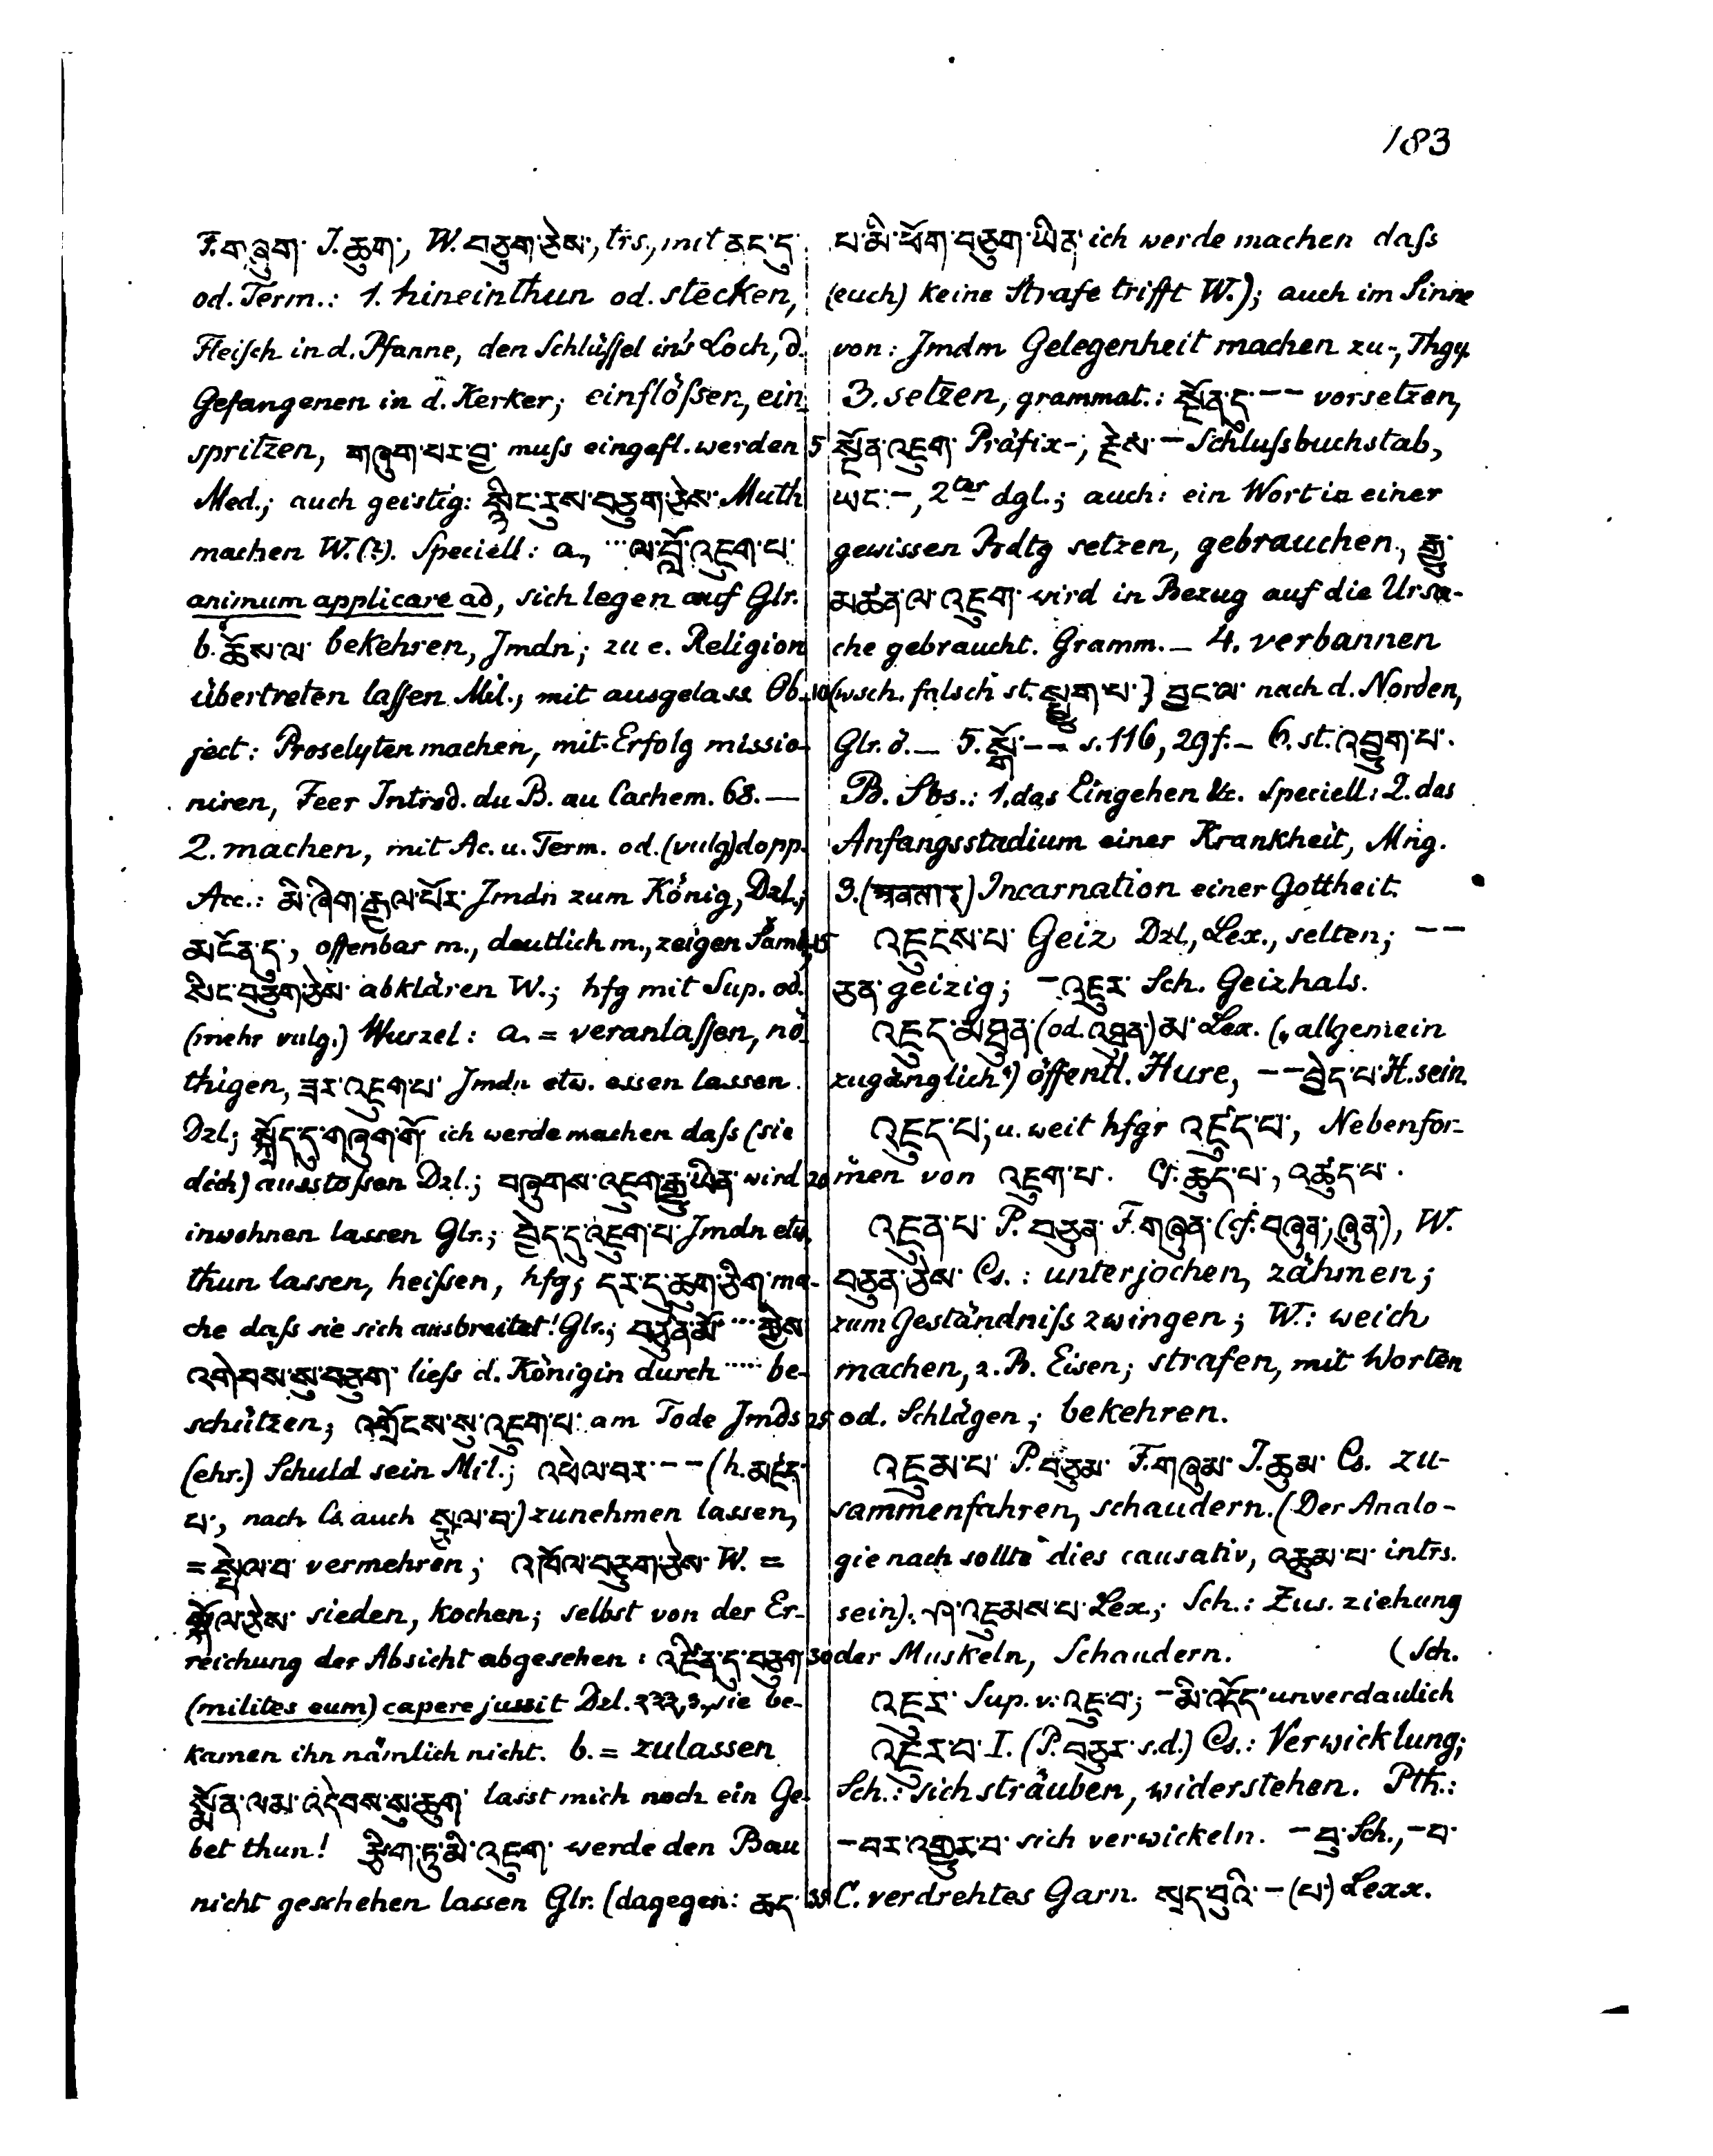 183
F. གཞུག་ I. ཆུག་, W. བཅུག་ཅེས་, trs., mit ནང་དུ་
od. Term.: 1. hineinthun od. stecken,
Fleisch in d. Pfanne, den Schlüssel in's Loch, d.
Gefangenen in d. Kerker; einflößen, ein-
spritzen, གཞུག་པར་བྱ་ muss eingefl. werden
Med.; auch geistig: སྙིང་རུས་བཅུག་ཅེས་ Muth
machen W. (?). Speciell: a., ...ལ་བློ་འཇུག་པ་
animum applicare ad, sich legen auf Glr.
b. ཆོས་ལ་ bekehren, Jmdn; zu e. Religion
übertreten lassen Mil.; mit ausgelass. Ob-
ject: Proselyten machen, mit Erfolg missio-
niren, Feer Introd. du B. au Cachem. 68. —
2. machen, mit Ac. u. Term. od. (vulg) dopp.
Acc.: མི་ཞིག་རྒྱལ་པོར་ Jmdn zum König, Dzl.;
མངོན་དུ་, offenbar m., deutlich m., zeigen
སིང་བཅུག་ཅེས་ abklären W.; hfg mit Sup. od.
(mehr vulg.) Wurzel: a. = veranlassen, nö-
thigen, ཟར་འཇུག་པ་ Jmdn etw. essen lassen.
Dzl; སྤྱོད་དུ་གཞུག་གོ་ ich werde machen dass (sie
dich) ausstoßen Dzl.; བཞུགས་འཇུག་རྒྱུ་ཡིན་ wird
inwohnen lassen Glr.; བྱེད་དུ་འཇུག་པ་ Jmdn etw.
thun lassen, heißen, hfg; དར་དུ་ཆུག་ཅིག་ ma-
che dass sie sich ausbreitet! Glr.; བཙུན་མོ་ ... གྱིས་
འགེབས་སུ་བཅུག་ liess d. Königin durch .... be-
schützen; འགྲོངས་སུ་འཇུག་པ་ am Tode Jmds
(ehr.) Schuld sein Mil.; འཕེལ་བར་ – – (h. མཛད་
པ་, nach Cs. auch སྩལ་བ་) zunehmen lassen,
= སྤེལ་བ་ vermehren; འཁོལ་བཅུག་ཅེས་ W. =
སྐོལ་ཅེས་ sieden, kochen; selbst von der Er-
reichung der Absicht abgesehen: འཛིན་དུ་བཅུག་
(milites eum) capere jussit Dzl. ༢༢༢, 3., sie be-
kamen ihn nämlich nicht. b. = zulassen
སྨོན་ལམ་འདེབས་སུ་ཆུག་ lasst mich noch ein Ge-
bet thun! རྩིག་ཏུ་མི་འཇུག་ werde den Bau
nicht geschehen lassen Glr. (dagegen: ཆད་
པ་མི་ཕོག་བཅུག་ཡིན་ ich werde machen dass
(euch) keine Strafe trifft W.); auch im Sinne
von: Jmdm Gelegenheit machen zu -, Thgy.
3. setzen, grammat.: སྔོན་དུ་ – – vorsetzen,
5 སྔོན་འཇུག་ Präfix-; རྗེས་ – Schlußbuchstab,
ཡང་ –, 2ter dgl.; auch: ein Wort in einer
gewissen Bdtg setzen, gebrauchen, རྒྱུ་
མཚན་ལ་འཇུག་ wird in Bezug auf die Ursa-
che gebraucht. Gramm. — 4. verbannen
10 (wsch. falsch st. སྤྱུག་པ་) བྱང་ལ་ nach d. Norden,
Glr. ö. — 5. སྒོ་ – – s. 116, 29 f. — 6. st. འབྱུག་པ་.
B. Sbs.: 1. das Eingehen &c. Speciell: 2. das
Anfangsstadium einer Krankheit, Mng.
3. (अवतार) Incarnation einer Gottheit.
15 འཇུངས་པ་ Geiz Dzl., Lex., selten; – –
ཅན་ geizig; – འཇུར་ Sch. Geizhals.
འཇུད་མཐུན་ (od. འཐུན་) མ་ Lex. („allgemein
zugänglich“) öffentl. Hure, – – བྱེད་པ་ H. sein.
འཇུད་པ་; u. weit hfgr འཛུད་པ་, Nebenfor-
20 men von འཇུག་པ་. Cf. ཆུད་པ་, འཚུད་པ་.
འཇུན་པ་ P. བཅུན་ F. གཞུན་ (cf. བཞུན་, ཞུན་), W.
བཅུན་ཅེས་ Cs.: unterjochen, zähmen;
zum Geständniß zwingen; W.: weich
machen, z. B. Eisen; strafen, mit Worten
25 od. Schlägen; bekehren.
འཇུམ་པ་ P. བཅུམ་ F. གཞུམ་ I. ཆུམ་ Cs. zu-
sammenfahren, schaudern. (Der Analo-
gie nach sollte dies causativ, འཆུམ་པ་ intrs.
sein). ཤ་འཇུམས་པ་ Lex.; Sch.: Zus. ziehung
30 der Muskeln, Schaudern. (Sch.
འཇུར་ Sup. v. འཇུ་བ་; – མི་འདོད་ unverdaulich
འཇུར་བ་ I. (P. བཅུར་ s.d.) Cs.: Verwicklung;
Sch.: sich sträuben, widerstehen. Pth.:
– བར་འགྱུར་བ་ sich verwickeln. – བུ་ Sch., – བ་
35 C. verdrehtes Garn. སྲད་བུའི་ – (པ་) Lexx.